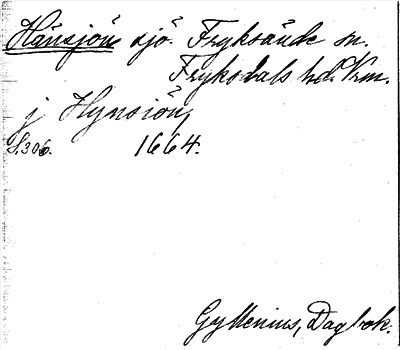 Hänsjön sjö. Fryksände sn.
Fryksdals hd. Vrm.
j Hynsiön,
S.306. 1664.
Gyllenius, Dagbok.